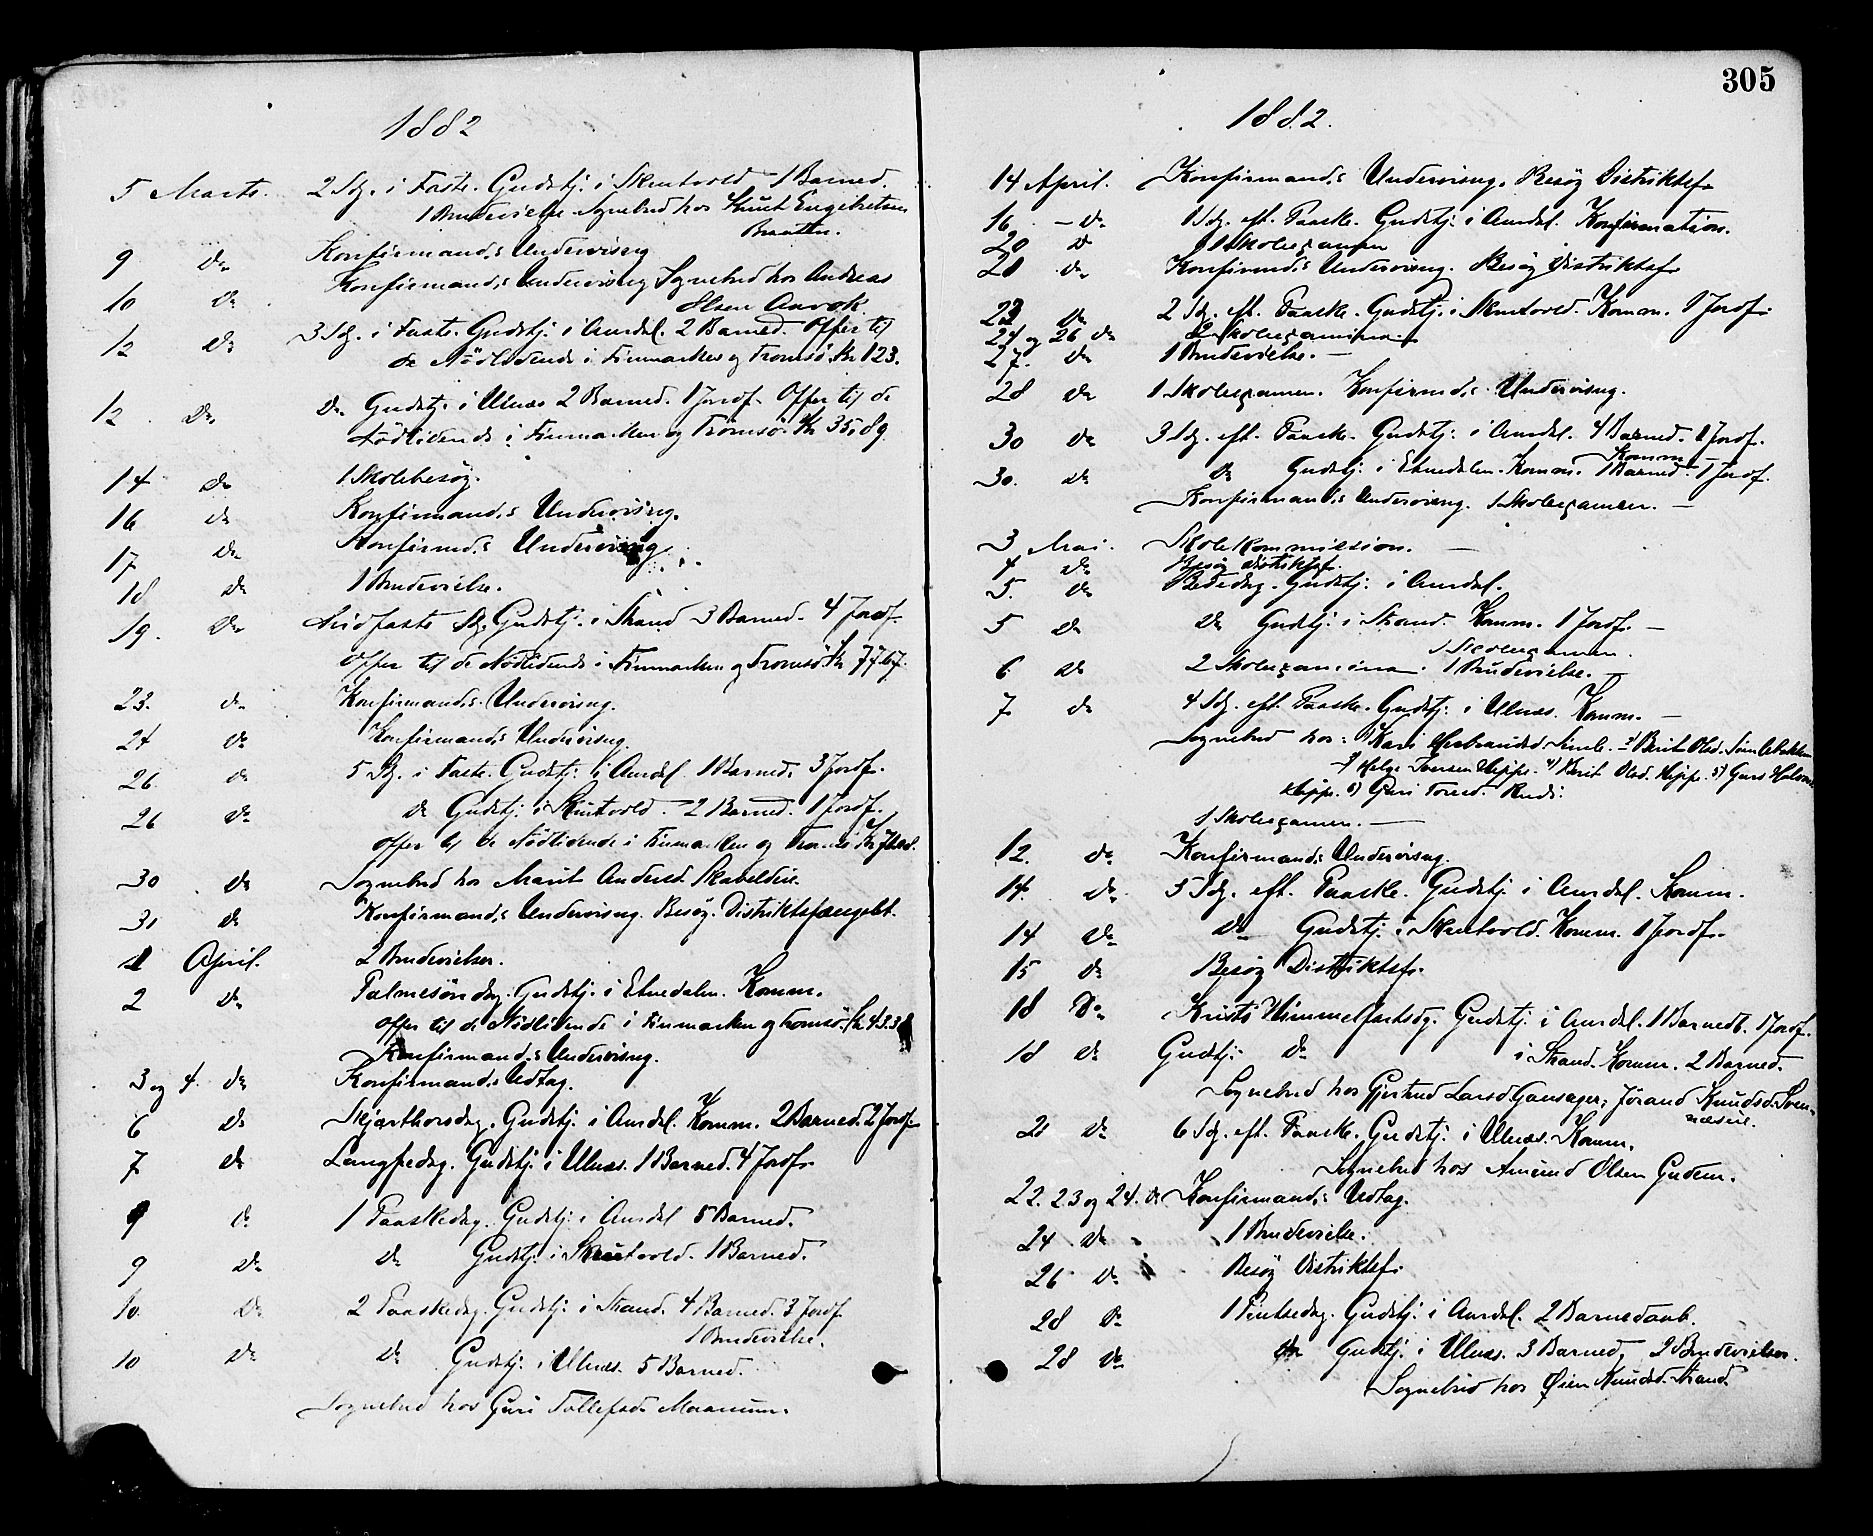 305
1882
5 Marts. 2 Sdg. i Faste. Gudstj. i Skrutvold 1 Barned.
1 Brudevielse Sognebud hos Knut Engebretsen
Braaten.
9 do Konfirmand.s Undervisng
10 do Konfirmand.s Undervisng Sognebud hos Andreas
Olsen
12 do 3 Sdg. i Faste. Gudstj. i Aurdal. 2 Barned. Offer til
de Nödlidende i Finmarken og Tromsö. Kr 123.
12 do do Gudstj. i Ulnæs 2 Barned. 1 Jordf. Offer til de
Nödlidende i Finmarken og Tromsö. Kr 35,89.
14 do 1 Skolebesög.
16 do Konfirmand.s Undervisng.
17 do Konfirmd.s Undervisng
18 do 1 Brudevielse.
19. do Midfaste Sdg. Gudstj. i Strand 3 Barned. 4 Jordf.
Offer til de Nödlidende i Finmarken og Tromsö Kr 77,67.
23. do Konfirmand.s Undervisng.
24 do Konfirmand.s Undervisng
26. do 5 Sdg. i Faste. Gudstj. i Aurdal. 1 Barned. 3 Jordf.
26 do do Gudstj. i Skrutvold. 2 Barned. 1 Jordf.
Offer til de Nödlidende i Finmarken og Tromsö Kr
30 do Sognebud hos Marit Andersd.
31 do Konfirmand.s Undervisng. Besög. Distriktsfængslet.
1 April. 2 Brudevielser.
2 do Palmesöndag. Gudstj. i Etnedalen. Komm.
Offer til de Nödlidende i Finmarken og Tromsö. Kr 43.3
Konfirmand.s Undervisng.
3 og 4. do Konfirmand.s Udtag.
6 do Skjærthorsdag. Gudstj. i Aurdal. Komm. 2 Barned. 2 Jordf.
7 do Langfredag. Gudstj. i Ulnæs. 1 Barned. 4 Jordf.
9 do 1 Paaskedag. Gudstj. i Aurdal 5 Barned.
9 do do Gudstj. i Skrutvold. 1 Barned.
10. do 2 Paaskedag. Gudstj. i Strand. 4 Barned. 3 Jordf.
1 Brudevielse.
10 do do Gudstj. i Ulnæs. 5 Barned.
Sognebud hos Guri Tollefsd.
1882.
14 April. Konfirmand.s Undervisng. Besög Distriktsf.
16 do 1 Sdg. eft. Paaske. Gudstj. i Aurdal. Konfirmation.
20 do 1 Skoleexamen
21 do Konfirmd.s Undervisng. Besög Distriktsf.
23 do 2 Sdg. eft. Paaske. Gudstj. i Skrutvold. Komm. 1 Jordf.
24 og 26 do 2 Skoleexamina
27. do 1 Brudevielse.
28 do 1 Skoleexamen. Konfirmd.s Undervisng.
30 do 3 Sdg. eft. Paaske. Gudstj. i Aurdal. 4 Barned. 1 Jordf.
Komm
30. do do Gudstj. i Etnedalen. Komm. 1 Barned. 1 Jordf.
Konfirmand.s Undervisng. 1 Skoleexamen.
3 Mai. Skolekommission.
4 do Besög Distriktsf.
5. do Bededag. Gudstj. i Aurdal.
5 do do Gudstj. i Strand. Komm. 1 Jordf.
1 Skoleexamen.
6 do 2 Skoleexamina. 1 Brudevielse.
7 do 4 Sdg. eft. Paaske. Gudstj. i Ulnæs. Komm.
Sognebud hos: 1) Kari 2) Berit Olsd.
3) Helge Iversen Hippe. 4) Berit Olsd. Hippe. 5) Guri
Hippe. 6) Guri Tored. Rudi.
1 Skoleexamen.
12. do Konfirmand.s Undervisng.
14. do 5 Sdg. eft. Paaske. Gudstj. i Aurdal. Komm.
14 do do Gudstj. i Skrutvold. Komm. 1 Jordf.
15 do Besög Distriktsf.
18 do Kristi Himmelfartsdg. Gudstj. i Aurdal. 1 Barned. 1 Jordf.
18 do Gudstj. do i Strand. Komm. 2 Barned.
Sognebud hos Gjertrud Larsd Gausager; Jörand Knudsd.
21 do 6 Sdg. eft. Paaske. Gudstj. i Ulnæs. Komm.
Sognebud hos Amund Olsen
22. 23 og 24. do Konfirmand.s Udtag.
24 do 1 Brudevielse.
26 do Besög Distriktsf.
28 do 1 Pintsedag. Gudstj. i Aurdal. 2 Barnedaab.
28 do do Gudstj. i Ulnæs. 3 Barned. 2 Brudevielser.
Sognebud hos Strand.